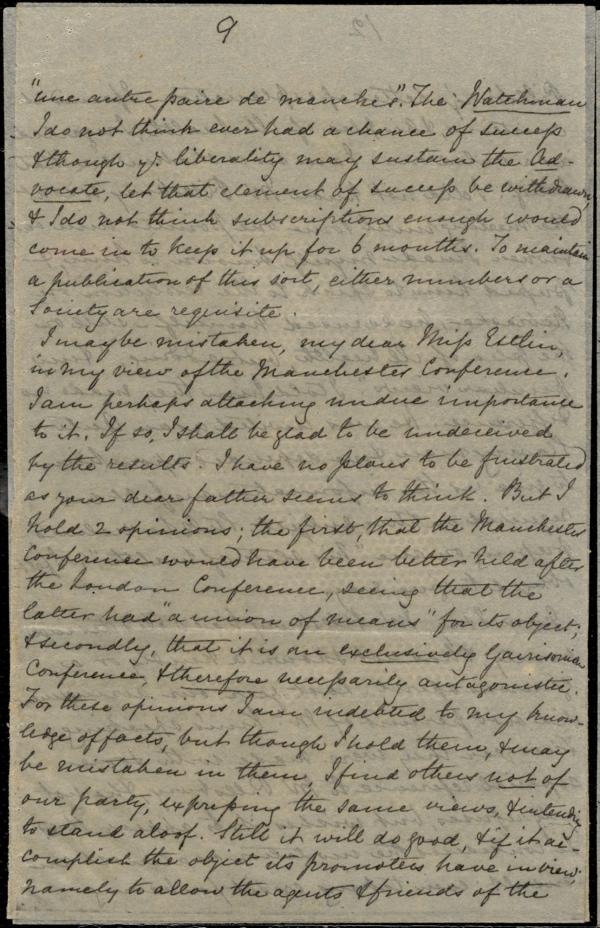 9
"une autre paire de manches". The Watchman
I do not think ever had a chance of success
& though yr. liberality may sustain the Ad-
vocate, let that element of success be withdrawn
& I do not think subscriptions enough would
come in to keep it up for 6 months. To maintain
a publication of this sort, either numbers or a
Society are requisite.
I may be mistaken, my dear Miss Estlin,
in my view of the Manchester Conference.
I am perhaps attaching undue importance
to it. If so, I shall be glad to be undeceived
by the results. I have no plans to be frustrated
as your dear father seems to think. But I
hold 2 opinions; the first, that the Manchester
Conference would have been better held after
the London Conference, seeing that the
latter had "a union of means" for its object;
& secondly, that it is an exclusively Garrisonian
Conference, & therefore necessarily antagonistic.
For these opinions I am indebted to my know-
ledge of facts, but though I hold them, & may
be mistaken in them, I find others not of
our party, expressing the same views, & intending
to stand aloof. Still it will do good, & if it ac-
complish the object its promoters have in view,
namely to allow the agents & friends of the